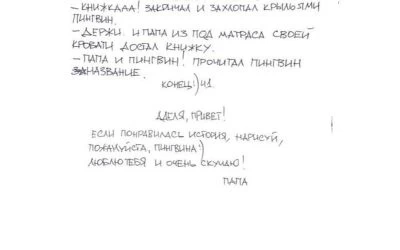 – КНИЖКДАА! ЗАКРИЧАЛ И ЗАХЛОПАЛ КРЫЛЬЯМИ
ПИНГВИН.
– ДЕРЖИ. И ПАПА ИЗ ПОД МАТРАСА СВОЕЙ
КРОВАТИ ДОСТАЛ КНИЖКУ.
– ПАПА И ПИНГВИН! ПРОЧИТАЛ ПИНГВИН
НАЗВАНИЕ.
КОНЕЦ:) Ч1
АДЕЛЯ, ПРИВЕТ!
ЕСЛИ ПОНРАВИЛАСЬ ИСТОРИЯ, НАРИСУЙ,
ПОЖАЛУЙСТА, ПИНГВИНА:)
ЛЮБЛЮ ТЕБЯ И ОЧЕНЬ СКУЧАЮ!
ПАПА